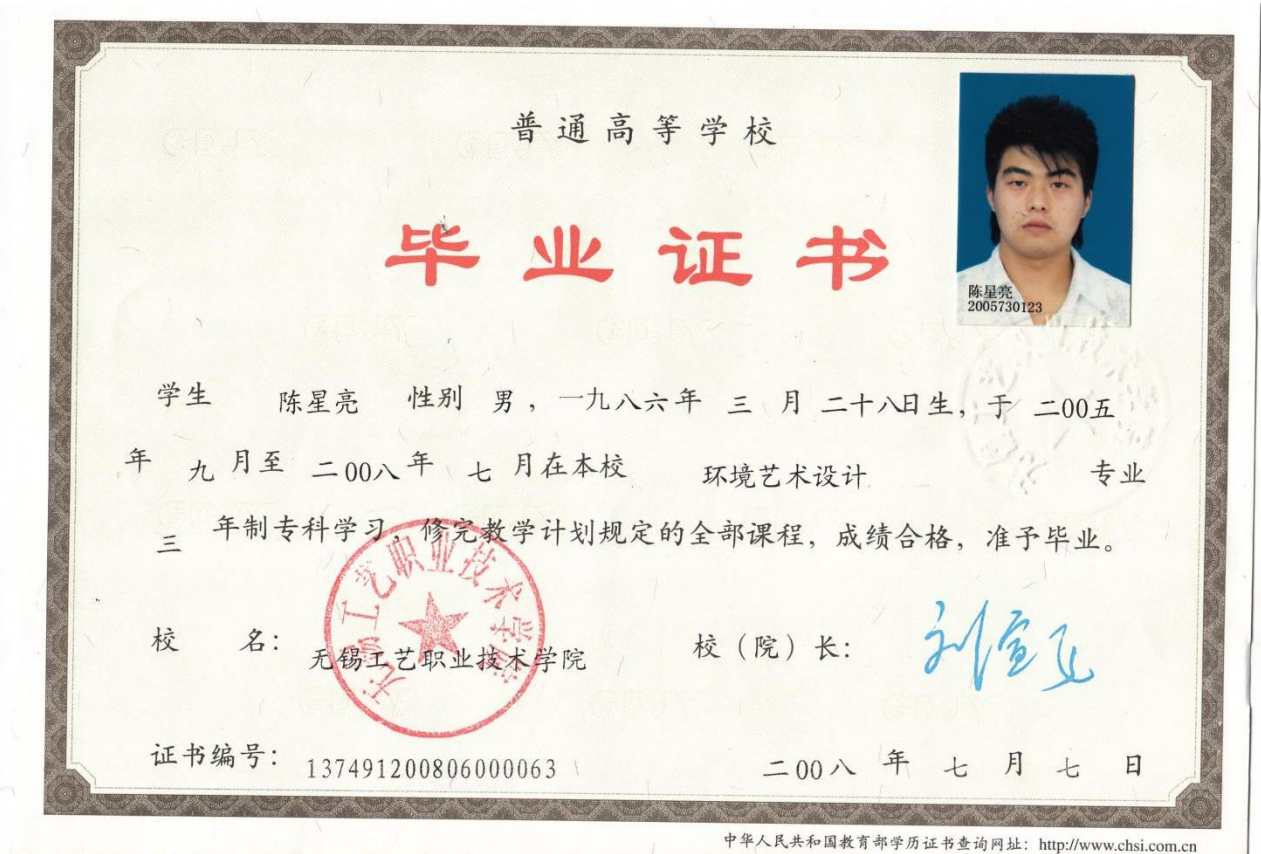 普通高等学校
毕业证书
陈星亮
2005730123
学生 陈星亮 性别 男，一九八六年 三 月 二十八日生，于 二00五
年 九 月至 二00八 年 七 月在本校 环境艺术设计 专业
三 年制专科学习，修完教学计划规定的全部课程，成绩合格，准予毕业。
无锡工艺职业技术学院
校 名： 无锡工艺职业技术学院 校（院）长：
证书编号： 137491200806000063 二00八 年 七 月 七 日
中华人民共和国教育部学历证书查询网址：http://www.chsi.com.cn